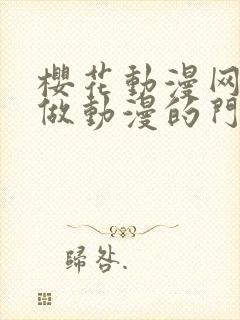 櫻花動漫网
做動漫的門
歸咎.